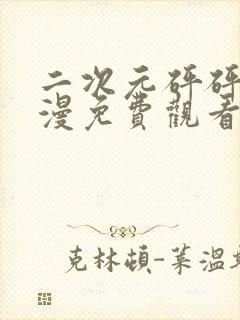 二次元砰砰
漫免費觀看
克林頓-萊溫